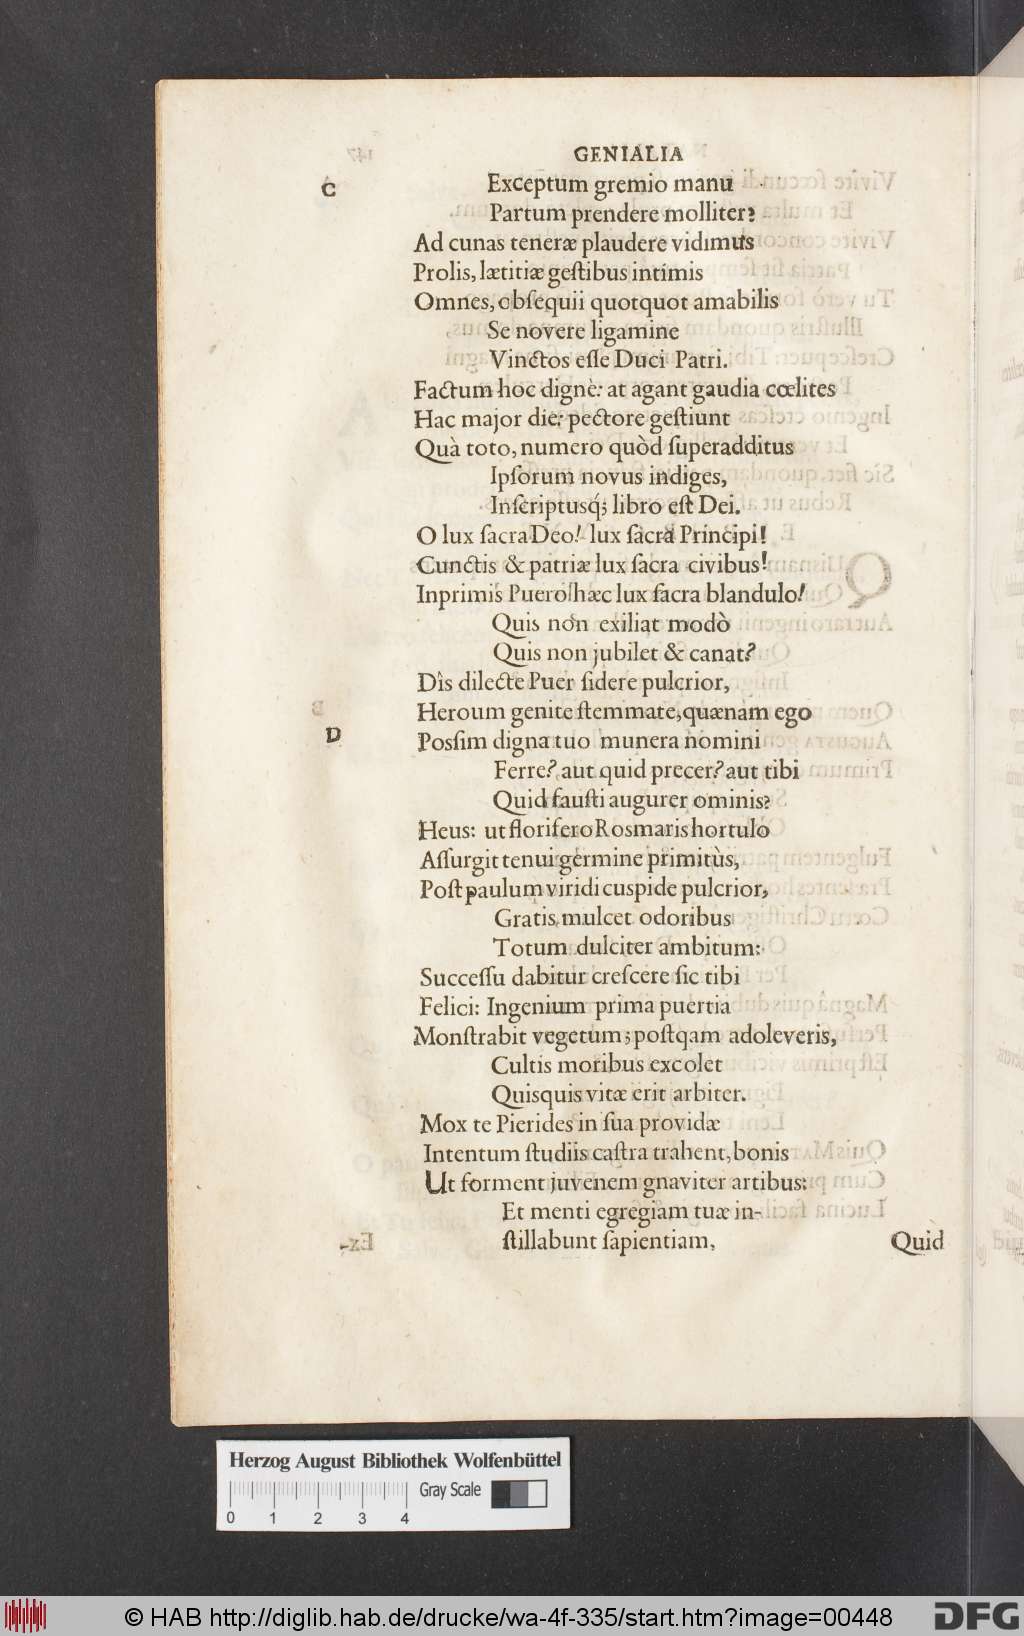 GENIALIA
C
Exceptum gremio manu
Partum prendere molliter?
Ad cunas teneræ plaudere vidimus
Prolis, lætitiæ geſtibus intimis
Omnes, obſequii quotquot amabilis
Se novere ligamine
Vinctos eſſe Duci Patri.
Factum hoc dignè: at agant gaudia cœlites
Hac major die: pectore geſtiunt
Quà toto, numero quòd ſuperadditus
Ipſorum novus indiges,
Inſcriptusq́; libro eſt Dei.
O lux ſacra Deo! lux ſacra Principi!
Cunctis & patriæ lux ſacra civibus!
Inprimis Puero hæc lux ſacra blandulo!
Quis non exiliat modò
Quis non jubilet & canat?
Dîs dilecte Puer ſidere pulcrior,
Heroum genite ſtemmate, quænam ego
D
Posſim digna tuo munera nomini
Ferre? aut quid precer? aut tibi
Quid fauſti augurer ominis?
Heus: ut florifero Rosmaris hortulo
Aſſurgit tenui germine primitùs,
Poſt paulum viridi cuspide pulcrior,
Gratis mulcet odoribus
Totum dulciter ambitum:
Succeſſu dabitur creſcere ſic tibi
Felici: Ingenium prima puertia
Monſtrabit vegetum; poſtqam adoleveris,
Cultis moribus excolet
Quisquis vitæ erit arbiter.
Mox te Pierides in ſua providæ
Intentum ſtudiis caſtra trahent, bonis
Ut forment juvenem gnaviter artibus:
Et menti egregiam tuæ in-
ſtillabunt ſapientiam,
Quid
Herzog August Bibliothek Wolfenbüttel
Gray Scale
0 1 2 3 4
© HAB http://diglib.hab.de/drucke/wa-4f-335/start.htm?image=00448
DFG